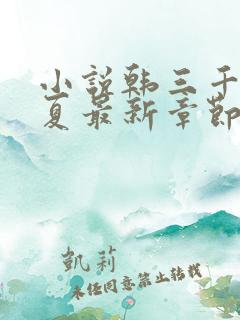 小说韩三千
夏最新章节
凯莉
未经同意禁止转载